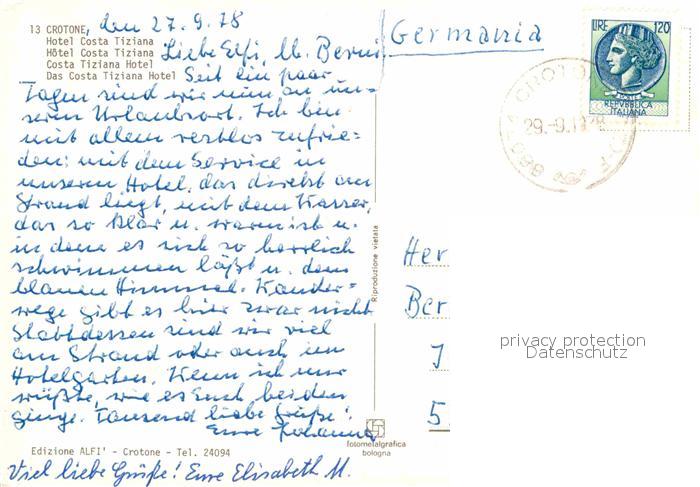 13 CROTONE, den 27.9.78
Hotel Costa Tiziana
Hôtel Costa Tiziana
Costa Tiziana Hotel
Das Costa Tiziana Hotel
Liebe Elfi, lb. Berni
Seit ein paar
Tagen sind wir nun an un-
serm Urlaubsort. Ich bin
mit allem restlos zufrie-
den: mit dem Service in
unserem Hotel, das direkt am
Strand liegt, mit dem Wasser,
das so klar u. warm ist u.
in dem es sich so herrlich
schwimmen läßt u. dem
blauen Himmel. Wander=
wege gibt es hier zwar nicht
Stattdessen sind wir viel
am Strand oder auch im
Hotelgarten. Wenn ich nur
wüßte, wie es Euch beiden
ginge. Tausend liebe Grüße!
Eure Johanna
Edizione ALFI' - Crotone - Tel. 24094
Viel liebe Grüße! Eure Elisabeth M.
Germania
LIRE 120
POSTE
REPVBBLICA
ITALIANA
29.-9.19
Riproduzione vietata
fotometalgrafica
bologna
Her
Ber
J
5
privacy protection
Datenschutz